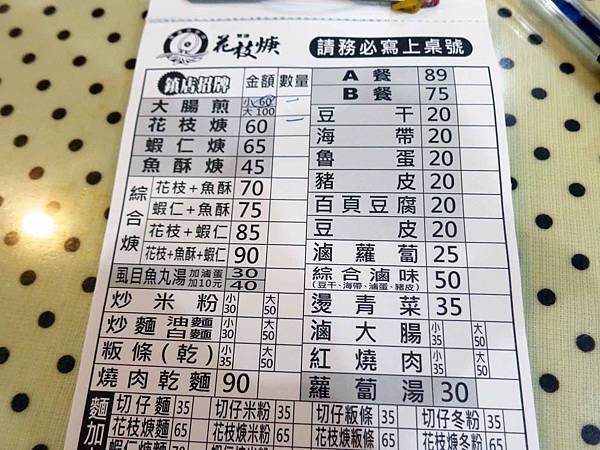 花枝焿
請務必寫上桌號
鎮店招牌 金額 數量
大腸煎 小 60 一
大 100
花枝焿 60 一
蝦仁焿 65
魚酥焿 45
綜合焿
花枝+魚酥 70
蝦仁+魚酥 75
花枝+蝦仁 85
花枝+魚酥+蝦仁 90
虱目魚丸湯 30
加滷蛋加10元 40
炒米粉 小30 大50
炒麵 油麵 白麵 小30 大50
粄條(乾) 小35 大50
燒肉乾麵 90
A餐 89
B餐 75
豆干 20
海帶 20
魯蛋 20
豬皮 20
百頁豆腐 20
豆皮 20
滷蘿蔔 25
綜合滷味 50
(豆干、海帶、滷蛋、豬皮)
燙青菜 35
滷大腸 小35 大50
紅燒肉 小35 大50
蘿蔔湯 30
麵加
切仔麵 35 切仔米粉 35 切仔粄條 35 切仔冬粉 35
花枝焿麵 65 花枝焿米粉 65 花枝焿粄條 65 花枝焿冬粉 65
蝦仁焿麵 70